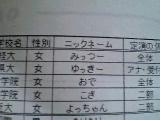 学校名 性別 ニックネーム 定演の
大 女 みっつー 全体
大 女 ゆっきー アナ・受付
学院 女 おで 全体
学院 女 こぎ 二部
大 女 よっちゃん 二部